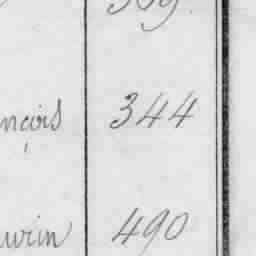 nçois 344
urin 490